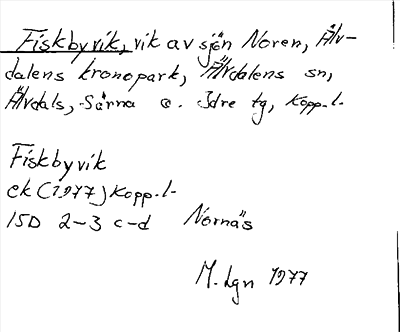 Fiskbyvik, vik av sjön Noren, Älv-
dalens kronopark, Älvdalens sn,
Älvdals, Särna o. Idre tg, Kopp. l.
Fiskbyvik
ek (1977) Kopp. l.
15D 2-3 c-d Nornäs
M. Lgn 1977